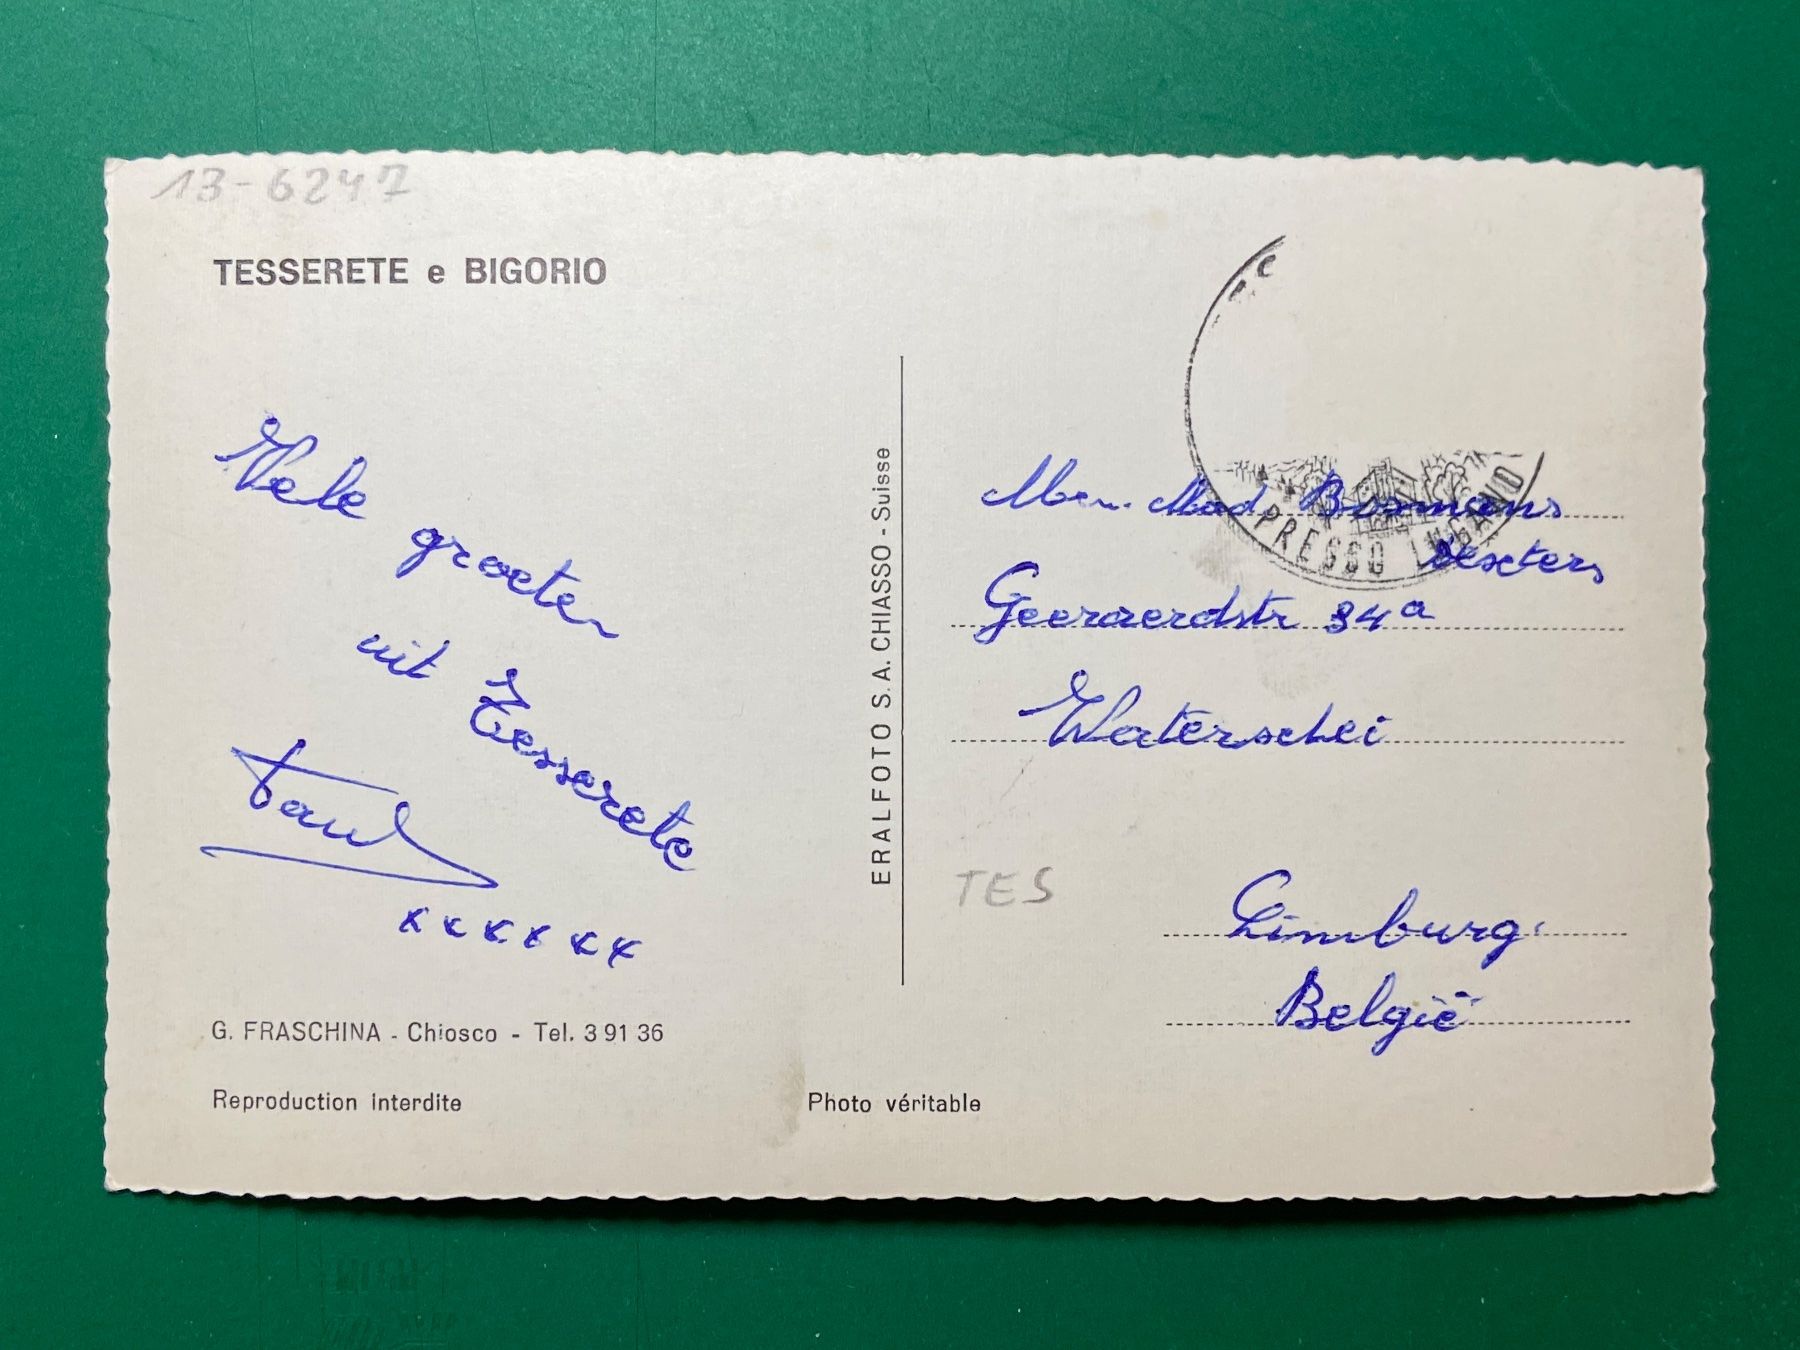 13-6247
TESSERETE e BIGORIO
Vele
groeten
uit Tesserete
Paul
x x x x x x
G. FRASCHINA - Chiosco - Tel. 3 91 36
Reproduction interdite
Photo véritable
ERALFOTO S.A. CHIASSO - Suisse
PRESSO LUGANO
Men. Mad. Bosmans
Geeraerdstr 34a
Waterschei
TES
Limburg.
België